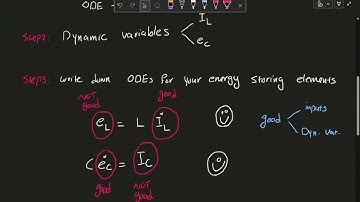 ODE
I_L
Step2: Dynamic variables
e_c
Step3: write down ODEs for your energy storing elements
NOT good
good
e_L = L İ_L
good
inputs
Dyn. var.
C ė_c = I_c
good
NOT good